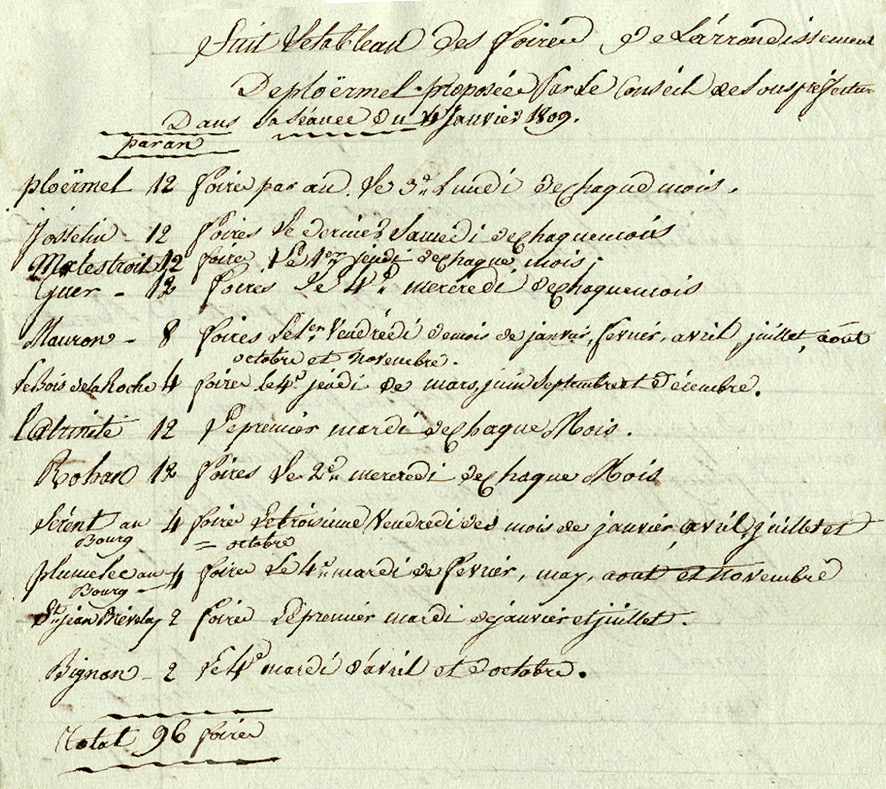 Suit Le tableau des foires de L'arrondissement
De ploërmel proposées Par Le Conseil de Sous préfecture
Dans la séance du 4 Janvier 1809.
par an
ploërmel 12 foires par an. Le 3e. Lundi de Chaque mois.
Josselin - 12 foires Le dernier Samedi de Chaque mois
Malestroit 12 foires Le 1er jeudi de Chaque mois.
Guer - 12 foires Le 4e. mercredi de Chaque mois
Mauron - 8 foires Le 1er. Vendredi de mois de janvier, fevrier, avril, juillet, août
octobre et Novembre.
Le Bois de la Roche 4 foires le 4e. jeudi de mars, juin Septembre et Décembre.
La trinité 12 Le premier mardi de Chaque Mois.
Rohan 12 foires Le 2e. mercredi de Chaque Mois
Sérent au 4 foires Le troisieme Vendredi des mois de janvier, avril, juillet et
Bourg = octobre
plumelec au 4 foires Le 4e. mardi de fevrier, may, aout et Novembre
Bourg -
St. jean Brévelay 2 foires Le premier mardi de janvier et juillet.
Bignan - 2 Le 4e. mardi d'avril et d'octobre.
Total 96 foires